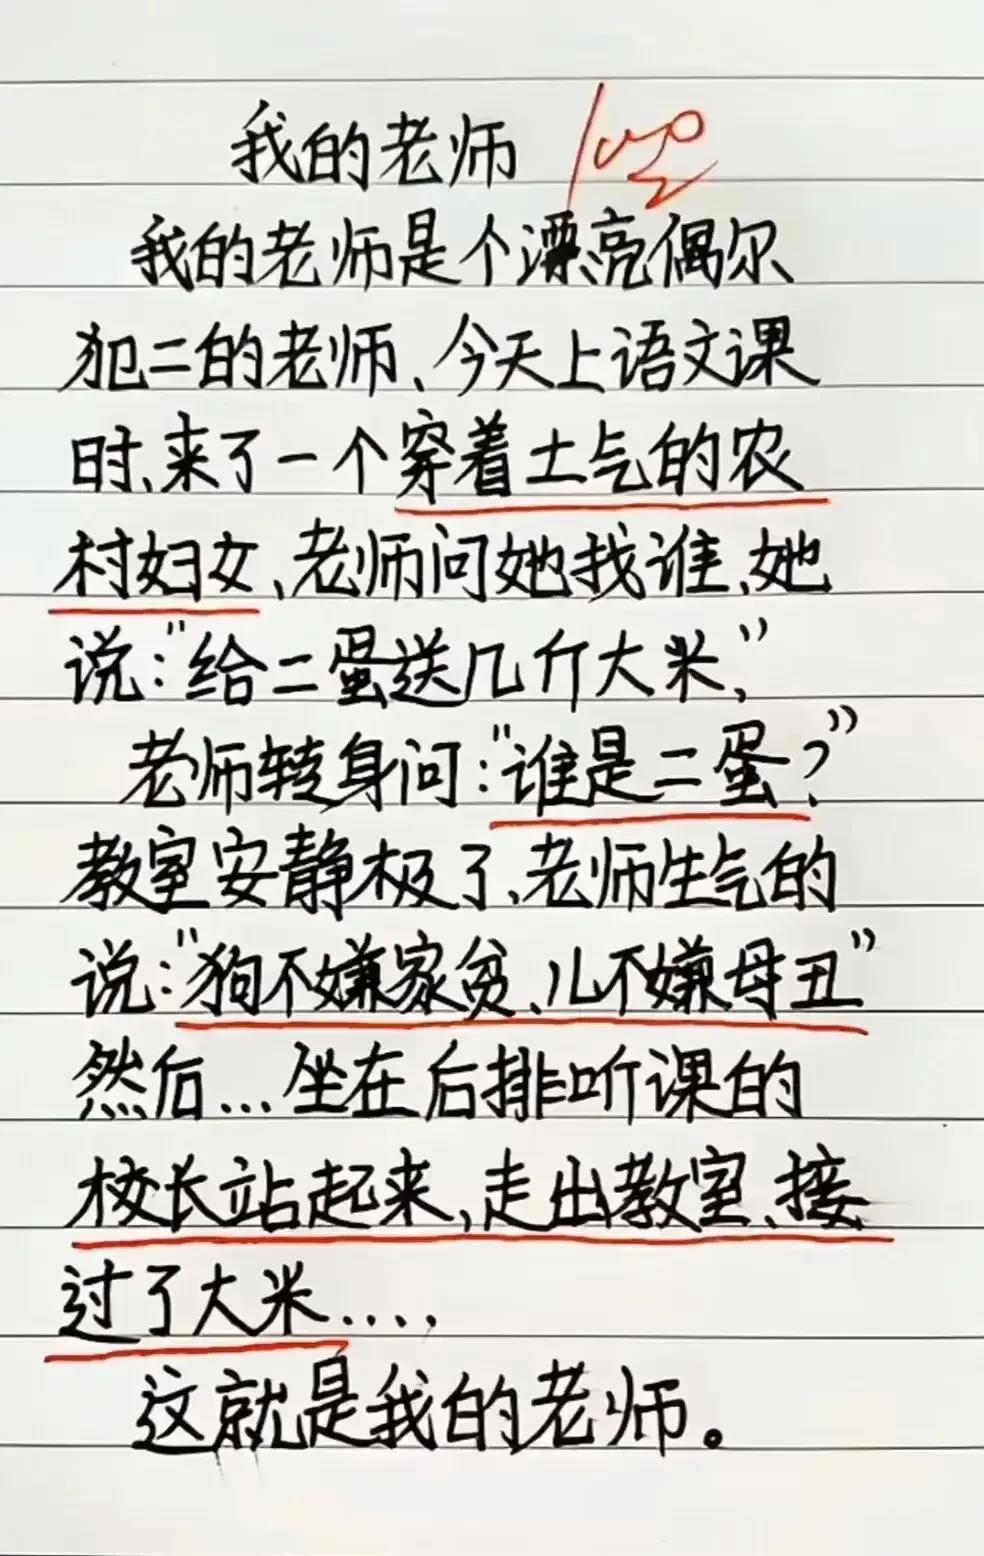 我的老师 100
我的老师是个漂亮偶尔
犯二的老师、今天上语文课
时、来了一个穿着土气的农
村妇女、老师问她找谁、她
说:"给二蛋送几斤大米,"
老师转身问:"谁是二蛋?"
教室安静极了、老师生气的
说:"狗不嫌家贫、儿不嫌母丑"
然后...坐在后排听课的
校长站起来,走出教室、接
过了大米....,
这就是我的老师。